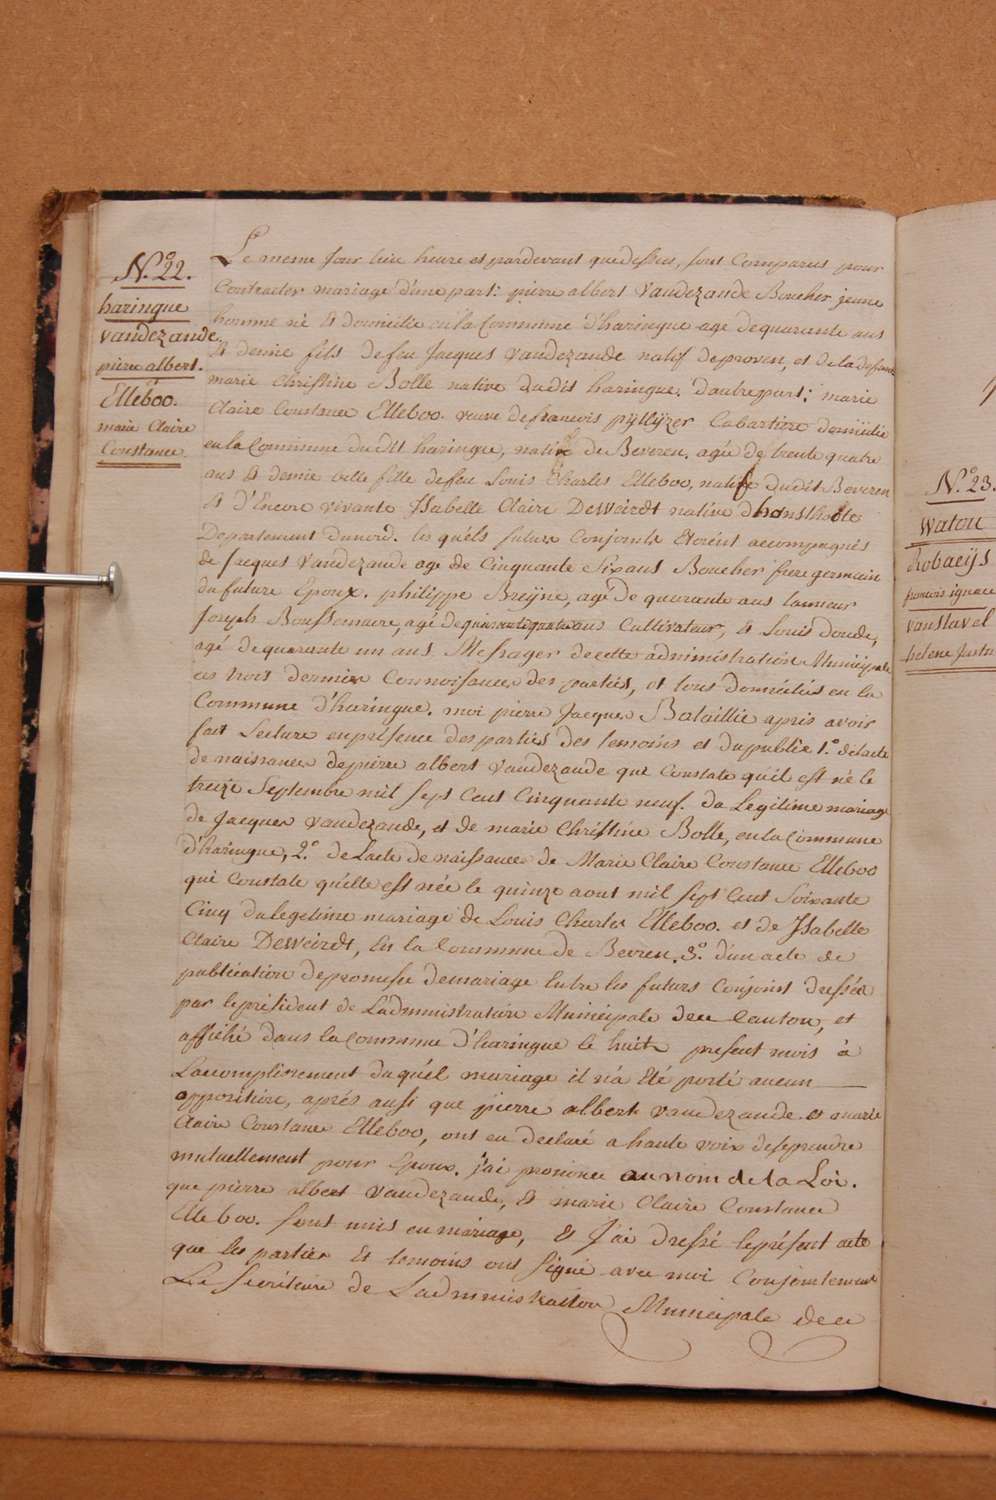 N.º 22.
haringue
vandezande
pierre albert.
Elleboo.
marie Claire
Constance
Le meme Jour heure et pardevant que dessus, sont Comparus pour
Contracter mariage d'une part: pierre albert vandezande Boucher jeune
homme né & domicilié en la Commune d'haringue agé de quarante ans
& demie fils de feu Jacques vandezande natif de proven, et de la defunte
marie Christine Bolle native dudit haringue. d'autre part; marie
Claire Constance Elleboo. veuve de francois pyllyzer Cabartiere domiciliée
en la Commune du dit haringue, native de Beveren. agée de trente quatre
ans & demie belle fille de feu Louis Charles Elleboo, natif du dit Beveren
& d'Encore vivante Isabelle Claire Deweirdt native d'honsthoote
Departement du nord. les quels futurs Conjoints Etoient accompagnés
de Jacques Vandezande agé de Cinquante Six ans Boucher frere germain
du future Epoux. philippe Breyne, agé de quarante ans tanneur
Joseph Boussemaere, agé de quarante quatre ans Cultivateur, & Louis doude,
agé de quarante un ans Messager de cette administration Municipale
ces trois dernier Connoissances des parties, et tous domiciliés en la
Commune d'haringue. moi pierre Jacques Bataillie apris avoir
fait Lecture en présence des parties des temoins et du public 1.º de lacte
de naissance de pierre albert vandezande que Constate qu'il est né le
treize Septembre mil sept Cent Cinquante neuf. du Legitime mariage
de Jacques vandezande, et de marie Christine Bolle, en la Commune
d'haringue, 2.º de Lacte de naissance de Marie Claire Constance Elleboo
qui Constate qu'elle est née le quinze aout mil sept Cent Soixante
Cinq du legetime mariage de Louis Charles Elleboo. et de Isabelle
Claire Deweirdt, En la Commune de Beveren. 3.º d'un acte de
publication de promesse de mariage Entre les futurs Conjoins dressée
par le président de L'administration Municipale dece Canton, et
affiché dans la Commune d'haringue le huite present mois à
Laccomplissement du quél mariage il n'a Eté porté aucun
opposition, aprés aussi que pierre albert vandezande. et marie
Claire Constance Elleboo, ont eu declaré a haute voix de seprendre
mutuellement pour Epoux. j'ai prononcé au nom de la Loi.
que pierre albert vandezande, & marie Claire Constance
Elleboo. sont unis en mariage, & J'ai dressé le présent acte
que les parties Et temoins ont signé avec moi Conjointement
Le Secrétaire de Ladministration Municipale dece
N.º 23.
watou
Robaeijs
francois ignace
vanslavel
helene